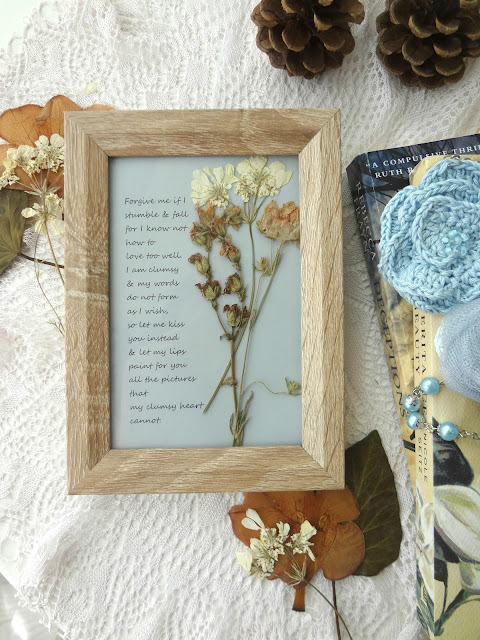 Forgive me if I
stumble & fall
for I know not
how to
love too well.
I am clumsy
& my words
do not form
as I wish,
so let me kiss
you instead
& let my lips
paint for you
all the pictures
that
my clumsy heart
cannot.
"A COMPULSIVE THRI
RUTH R
BEAUTY
NICOLE
SEITZ